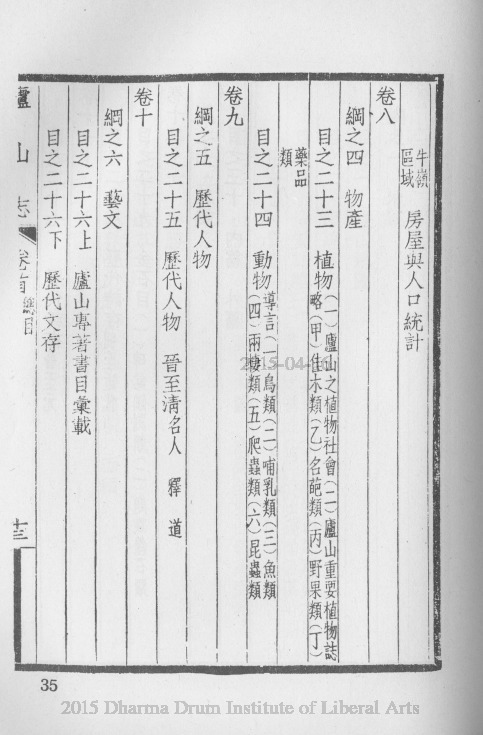 牛嶺
區域 房屋與人口統計
卷八
綱之四 物產
目之二十三 植物(一)廬山之植物社會(二)廬山重要植物誌
略(甲)佳木類(乙)名葩類(丙)野果類(丁)
藥品
類
目之二十四 動物導言(一)鳥類(二)哺乳類(三)魚類
(四)兩棲類(五)爬蟲類(六)昆蟲類
卷九
綱之五 歷代人物
目之二十五 歷代人物 晉至清名人 釋 道
卷十
綱之六 藝文
目之二十六上 廬山專著書目彙載
目之二十六下 歷代文存
廬山志 卷首 總目
十三
35
2015 Dharma Drum Institute of Liberal Arts